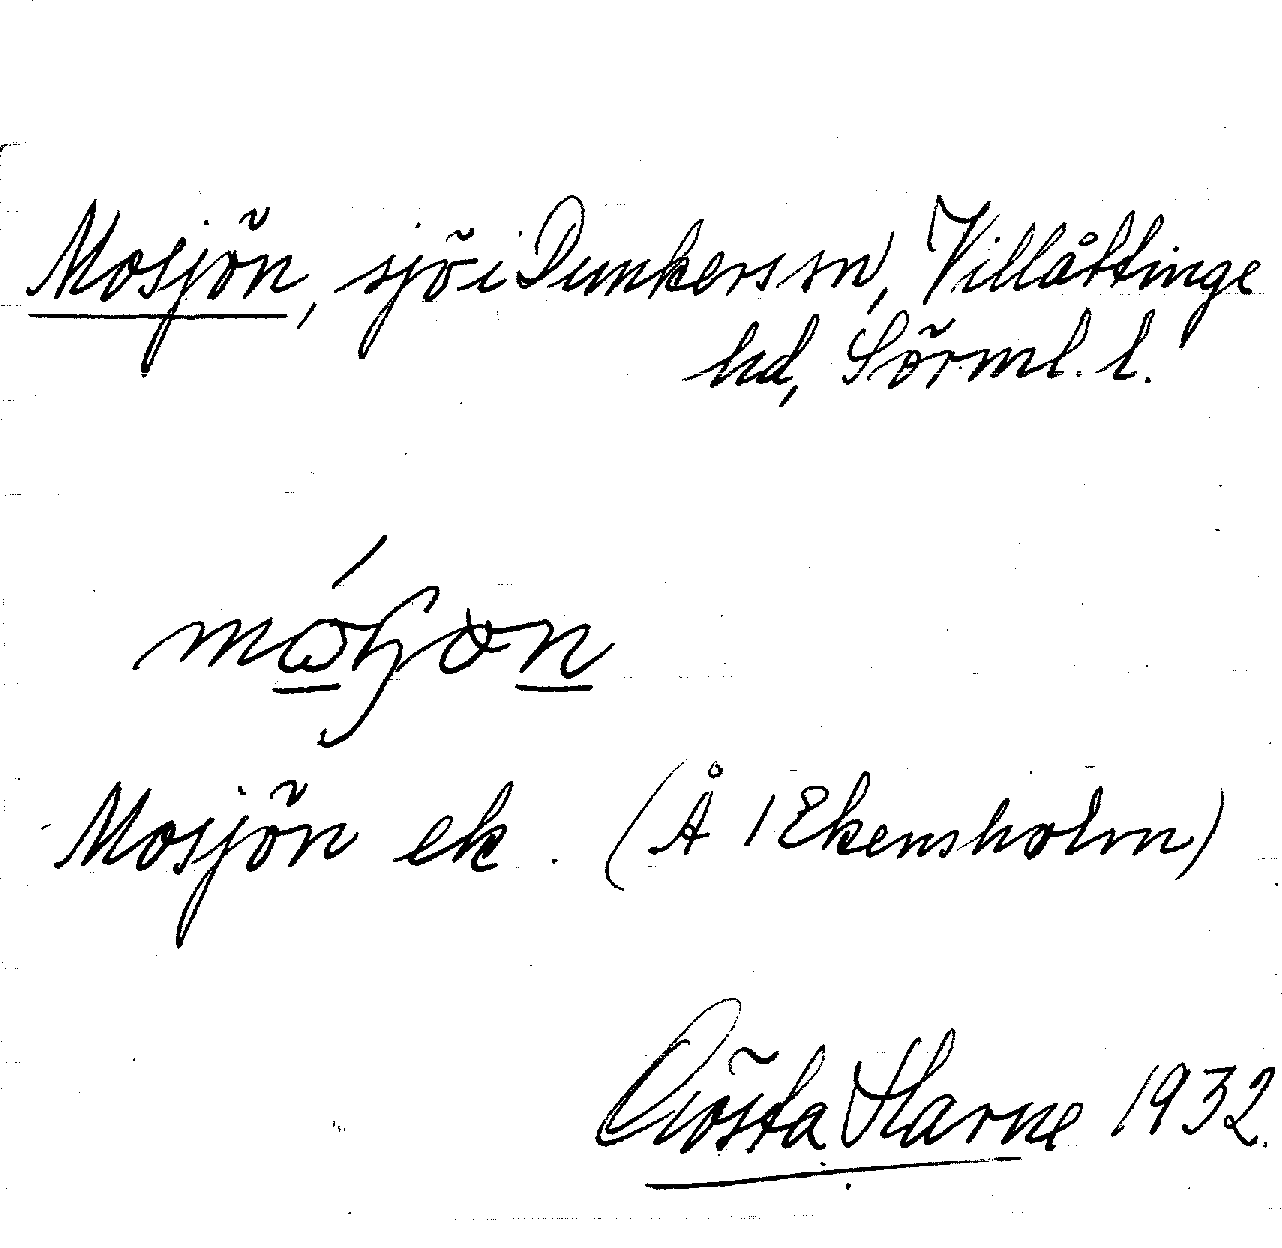 Mosjön, sjö i Dunkers sn, Villåttinge
hd, Sörml. l.
Mosjön ek. (Å 1 Ekensholm)
Gösta Harne 1932.